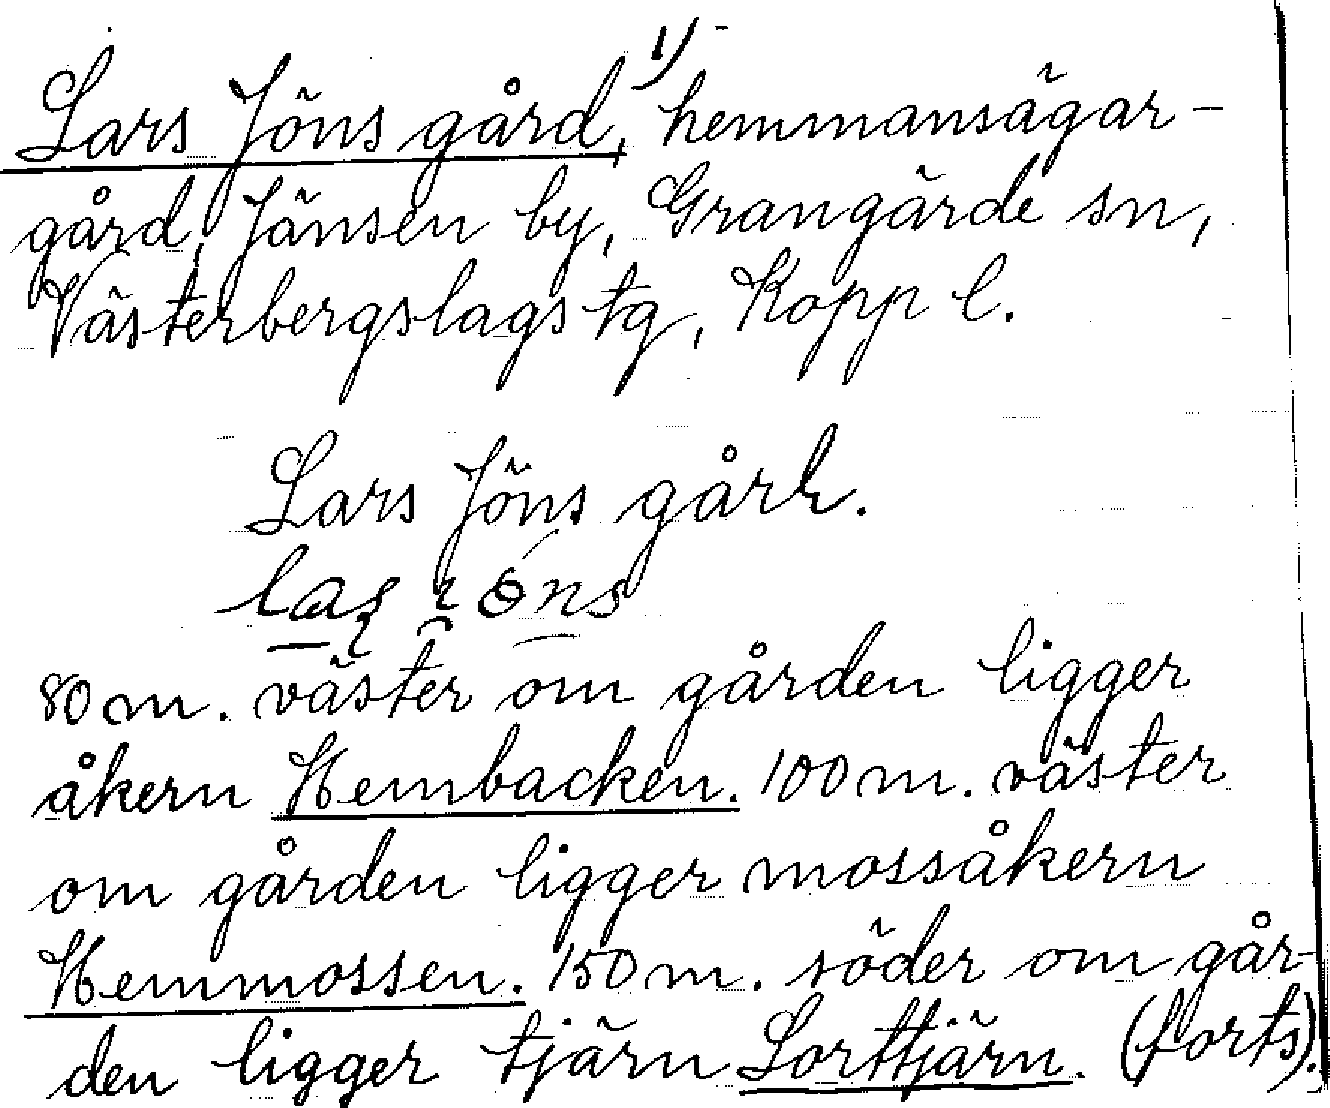 Lars Jöns gård, 1) hemmansägar-
gård, Jänsen by, Grangärde sn,
Västerbergslags tg, Kopp l.
Lars Jöns gård.
80 m. väster om gården ligger
åkern Hembacken. 100 m. väster
om gården ligger mossåkern
Hemmossen. 150 m. söder om går-
den ligger tjärn Lorttjärn. (forts).